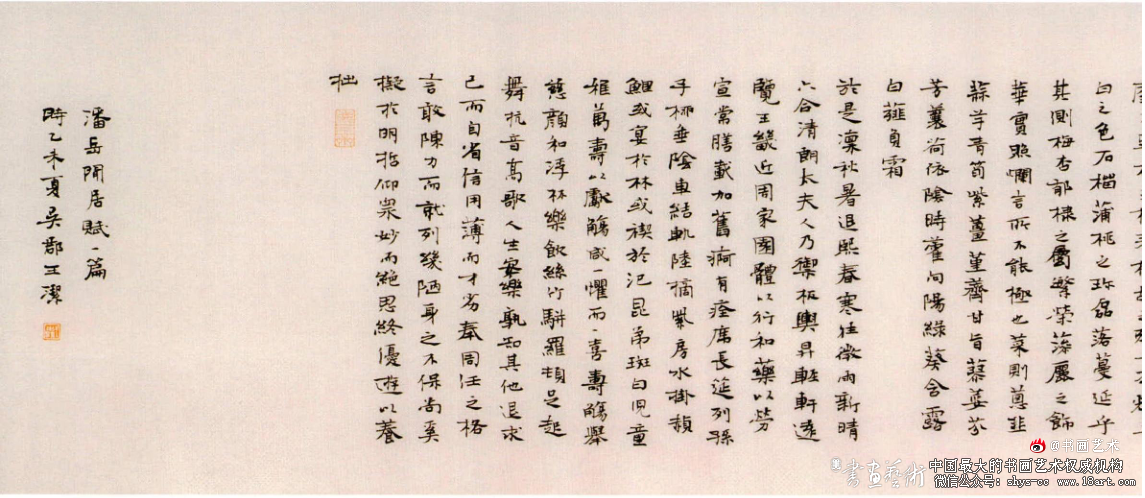 白之色石榴蒲桃之珎磊落蔓延乎
其側梅杏郁棣之屬繁榮藻麗之飾
華實照爛言所不能極也菜則蔥韭
蒜芋青筍紫薑堇薺甘旨蓼荾芬
芳蘘荷依陰時藿向陽綠葵含露
白薤負霜
於是凜秋暑退熙春寒往微雨新晴
六合清朗太夫人乃禦板輿昇輕軒遠
覽王畿近周家園體以行和藥以勞
宣常膳載加舊痾有痊席長筵列孫
子柳垂陰車結軌陸摘紫房水掛赬
鯉或宴於林或禊於汜昆弟斑白兒童
稚萬壽以獻觴咸一懼而一喜壽觴舉
慈顏和浮杯樂飲絲竹駢羅頓足起
舞抗音高歌人生安樂孰知其他退求
己而自省信用薄而才劣奉周任之格
言敢陳力而就列幾陋身之不保尚奚
擬於明哲仰衆妙而絕思終優遊以養
拙
潘岳閑居賦一篇
時乙未夏吳郡王潔
@书画艺术
書畫藝術
中国最大的书画艺术权威机构
微信公众号：shys-cc www.18art.com